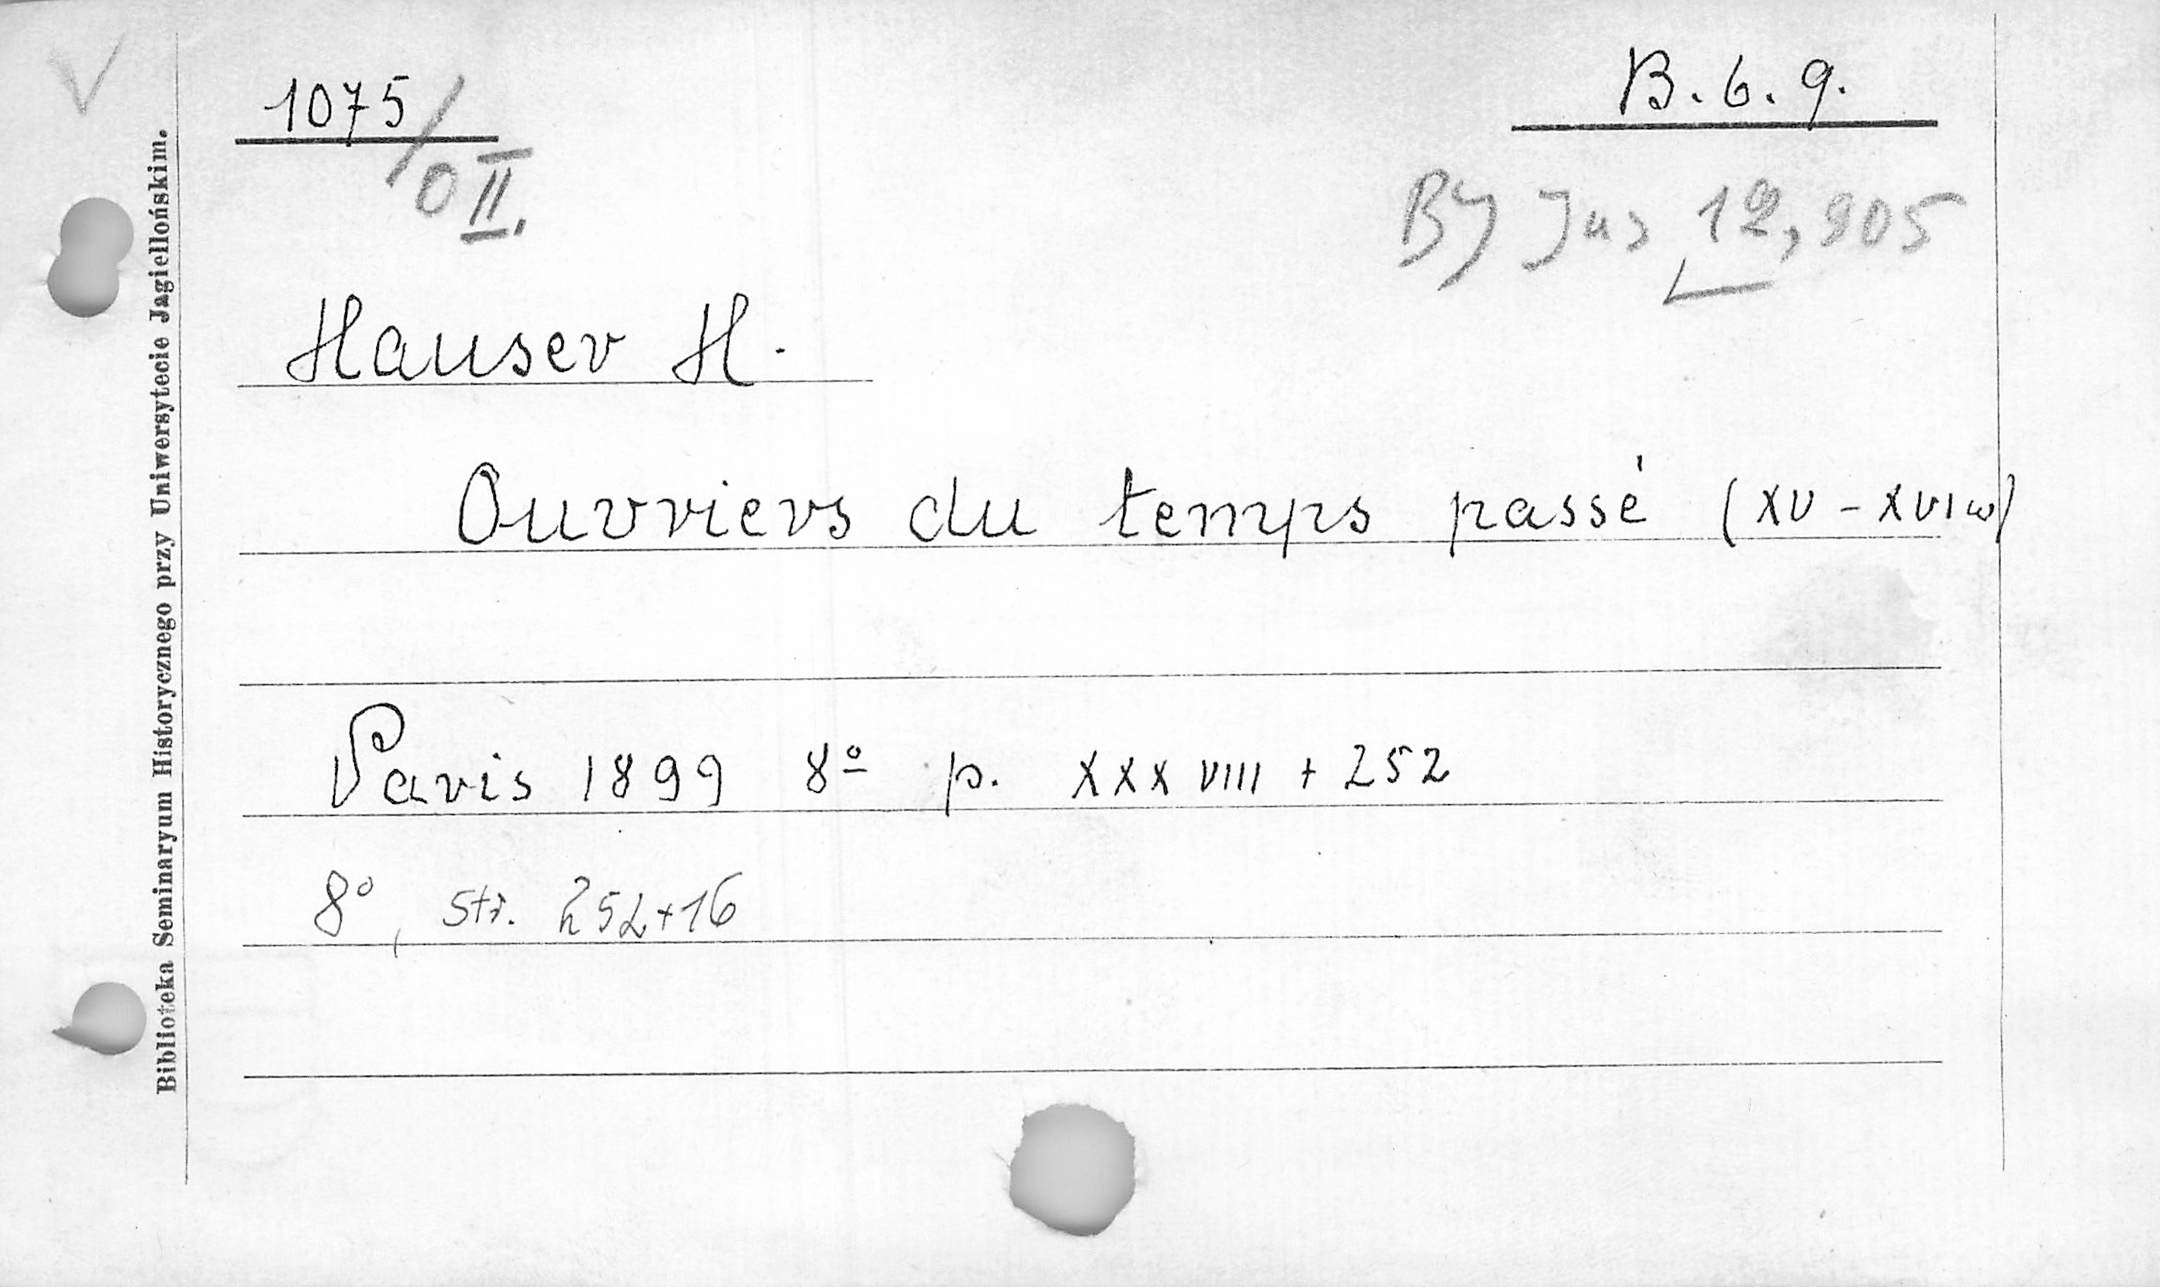 1075/OII.
B. 6. 9.
BJ Jus 12,905
Hauser H.
Ouvriers du temps passé (XV - XVI w)
Paris 1899 8º p. XXXVIII + 252
8°, str. 252+16
Biblioteka Seminaryum Historycznego przy Uniwersytecie Jagiellońskim.